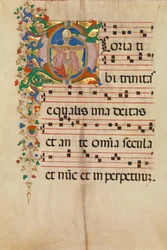 Gloria ti
bi trinita
equalis una deitas
et an te om̄ia secula
et nūc et in perpetuū.